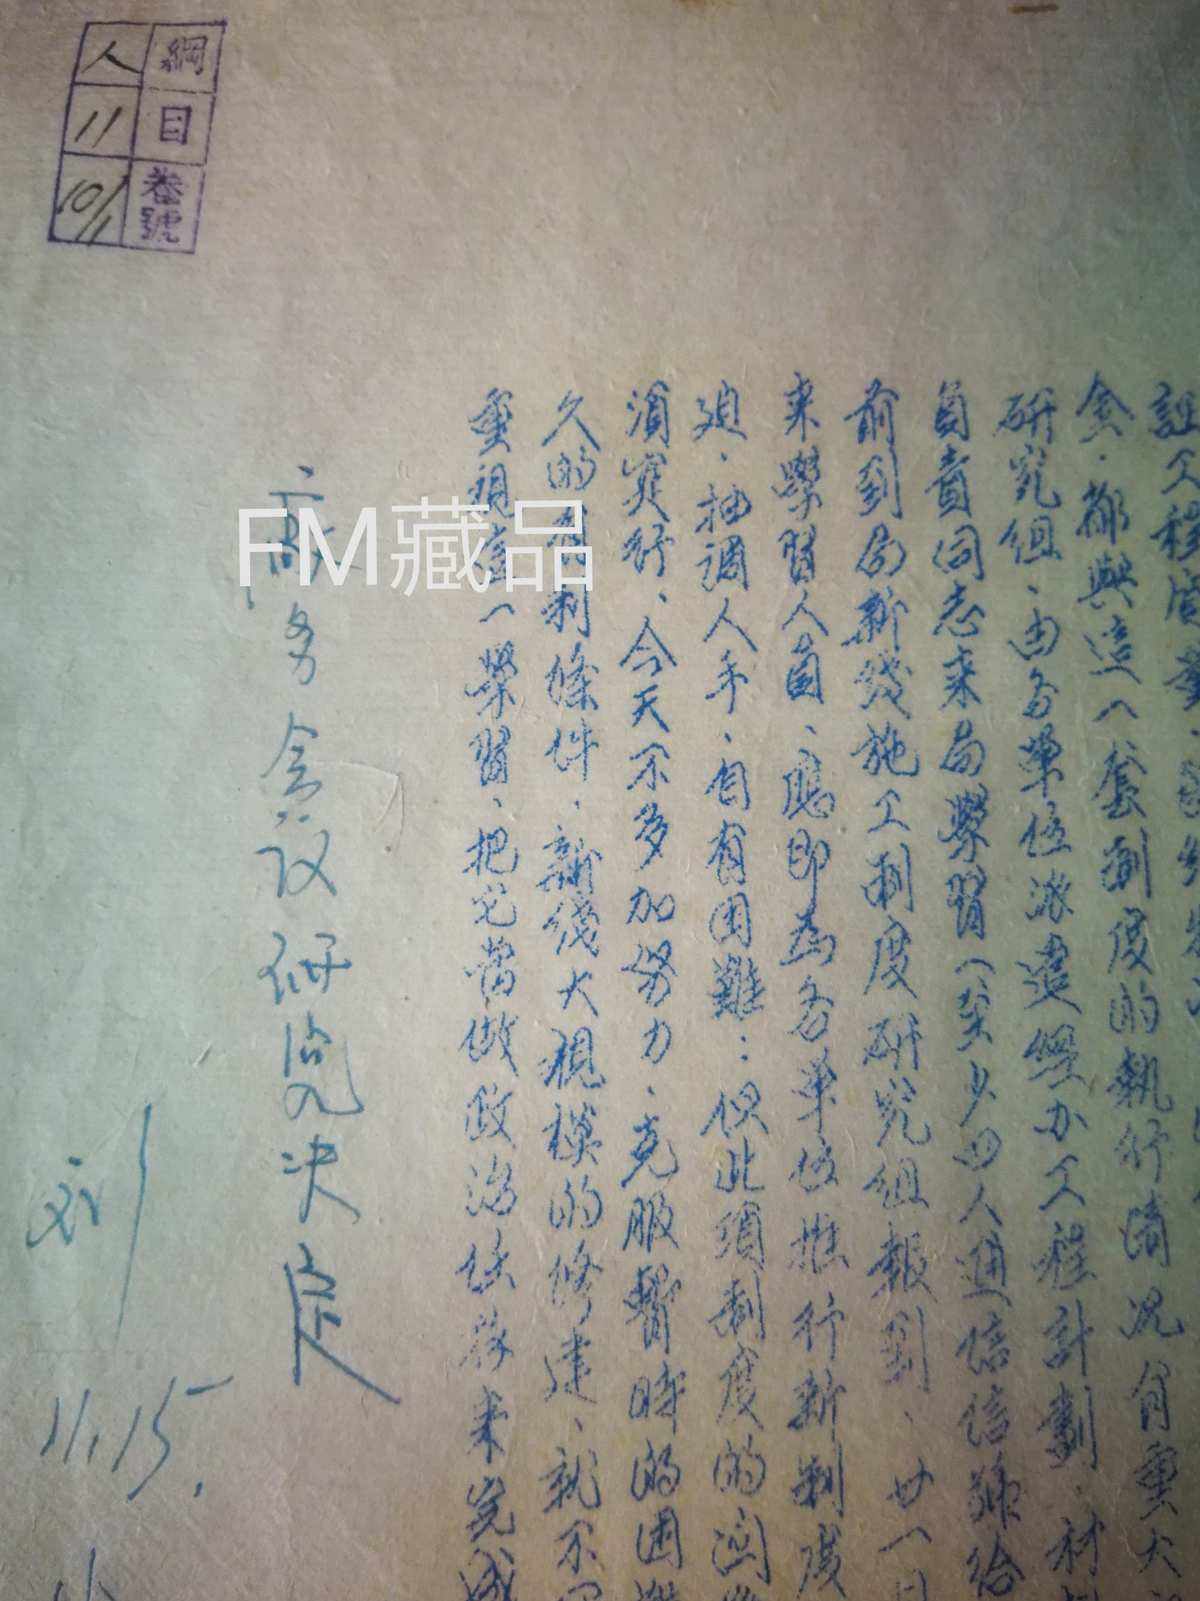 証工程質量
金、都與這一套制度的執行情况有重大
研究組、由各單位派遣經办工程計劃、材
負責同志来局學習（至少四人連信信號給
前到局新綫施工制度研究組報到、廿一日
来學習人員、應即為各單位推行新制度
迫、抽調人手、自有困難：但此項制度的
濱实行、今天不多加努力、克服暫時的困難
久的有利條件、新綫大規模的修建、就不
重視這一學習、把它當做政治任務来完成
务会议研究决定
刘
11.15.
綱 人
目 11
卷號 10/11
FM藏品